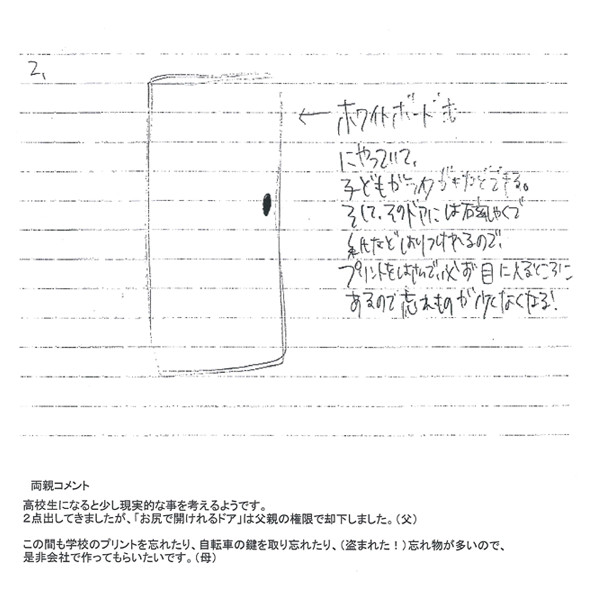 2,
← ホワイトボードも
にやっていて、
子どもがラクガキなどできる。
そして、そのドアには磁しゃくで
紙などはりつけれるので、
プリントをはさんで、必ず目に入るところに
あるので忘れものが少なくなる!
両親コメント
高校生になると少し現実的な事を考えるようです。
2点出してきましたが、「お尻で開けれるドア」は父親の権限で却下しました。(父)
この間も学校のプリントを忘れたり、自転車の鍵を取り忘れたり、(盗まれた!)忘れ物が多いので、
是非会社で作ってもらいたいです。(母)